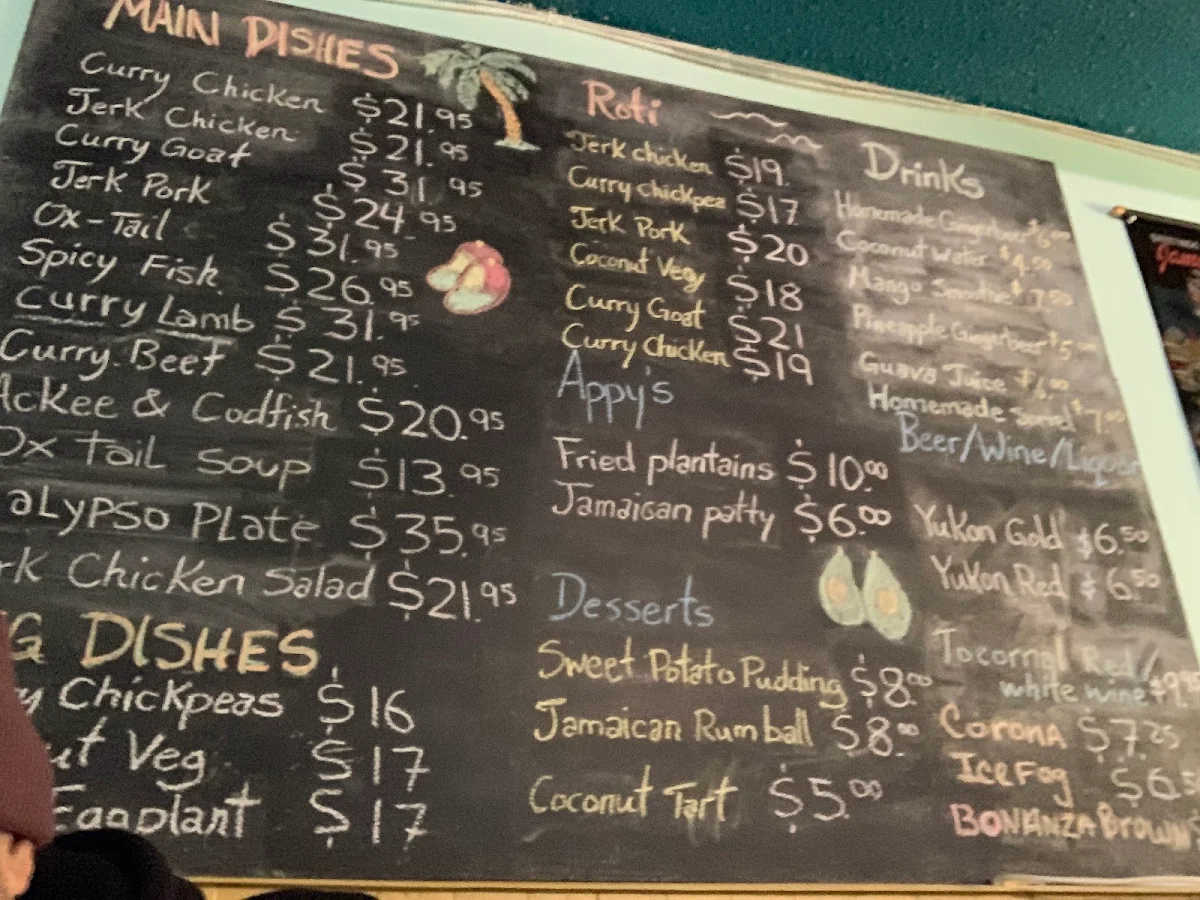 MAIN DISHES
Curry Chicken $21.95
Jerk Chicken $21.95
Curry Goat $31.95
Jerk Pork $24.95
Ox-Tail $31.95
Spicy Fish $26.95
Curry Lamb $31.95
Curry Beef $21.95
Ackee & Codfish $20.95
Ox Tail Soup $13.95
aLYPSO PLate $35.95
rk Chicken Salad $21.95
G DISHES
y Chickpeas $16
ut Veg $17
Eggplant $17
Roti
Jerk chicken $19
Curry chickpea $17
Jerk Pork $20
Coconut Vegy $18
Curry Goat $21
Curry Chicken $19
Appy's
Fried plantains $10.00
Jamaican patty $6.00
Desserts
Sweet Potato Pudding $8.00
Jamaican Rum ball $8.00
Coconut Tart $5.00
Drinks
Homemade Gingerbeer
Coconut Water $4.50
Mango Smoothie $7.50
Pineapple Gingerbeer $5
Guava Juice $6.00
Homemade Sorrel $7.00
Beer/Wine/Liquor
Yukon Gold $6.50
Yukon Red $6.50
Tocornal Red/
white wine
Corona $7.25
Ice Fog $6.5
BONANZA BROWN